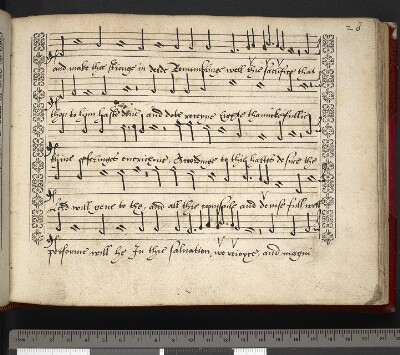 28
and make thee stronge in deede Remembringe well thie sacrifice that
thou to hym haste done, and dote receyve righte thanckefullie
thine offeringes everichone. Accordinge to thy hartes desire the
Lord will geve to the, and all thie counsaile and devise full well
performe will he In thie salvation, we reioyce, and magni